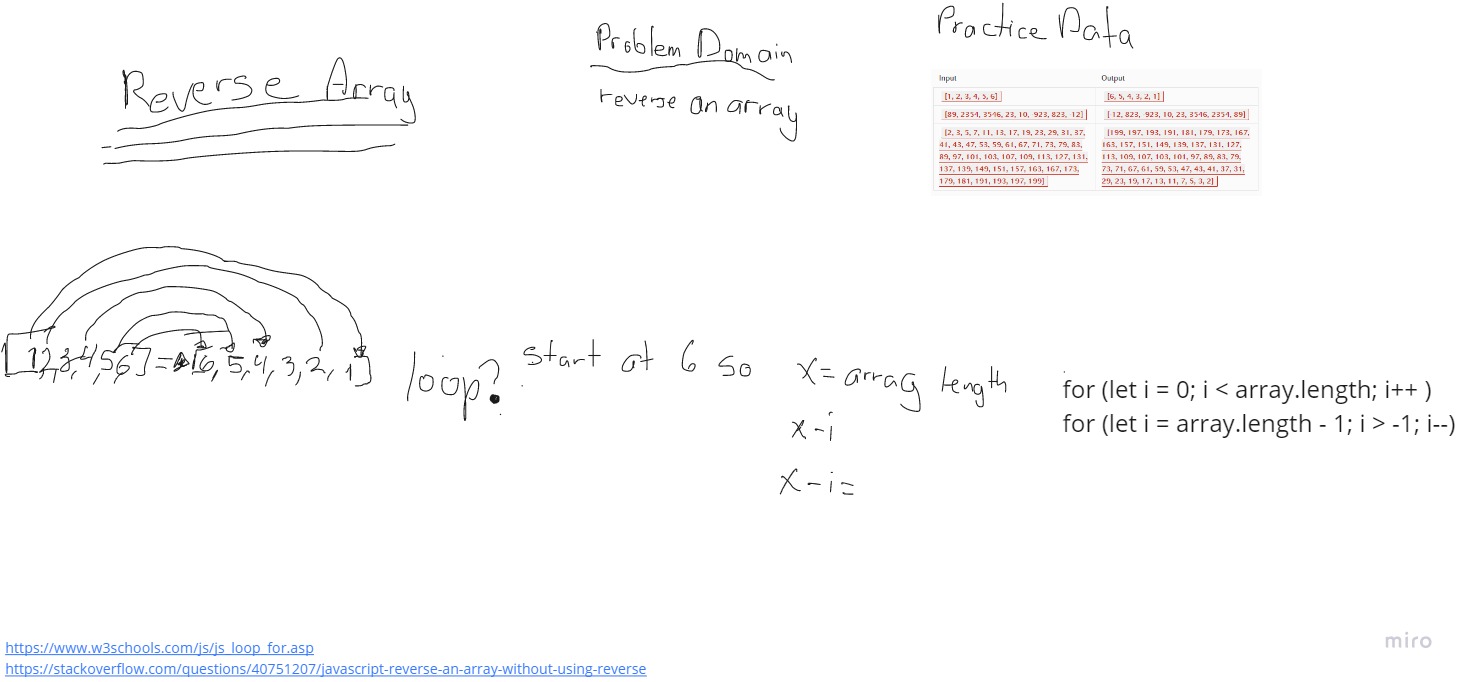 Reverse Array
Problem Domain
reverse an array
Practice Data
Input Output
[1, 2, 3, 4, 5, 6] [6, 5, 4, 3, 2, 1]
[89, 2354, 3546, 23, 10, -923, 823, -12] [-12, 823, -923, 10, 23, 3546, 2354, 89]
[2, 3, 5, 7, 11, 13, 17, 19, 23, 29, 31, 37,
41, 43, 47, 53, 59, 61, 67, 71, 73, 79, 83,
89, 97, 101, 103, 107, 109, 113, 127, 131,
137, 139, 149, 151, 157, 163, 167, 173,
179, 181, 191, 193, 197, 199]
[199, 197, 193, 191, 181, 179, 173, 167,
163, 157, 151, 149, 139, 137, 131, 127,
113, 109, 107, 103, 101, 97, 89, 83, 79,
73, 71, 67, 61, 59, 53, 47, 43, 41, 37, 31,
29, 23, 19, 17, 13, 11, 7, 5, 3, 2]
[1,2,3,4,5,6] = [6,5,4,3,2,1]
loop?
start at 6 so
x = array length
x - i
x - i =
for (let i = 0; i < array.length; i++ )
for (let i = array.length - 1; i > -1; i--)
https://www.w3schools.com/js/js_loop_for.asp
https://stackoverflow.com/questions/40751207/javascript-reverse-an-array-without-using-reverse
miro